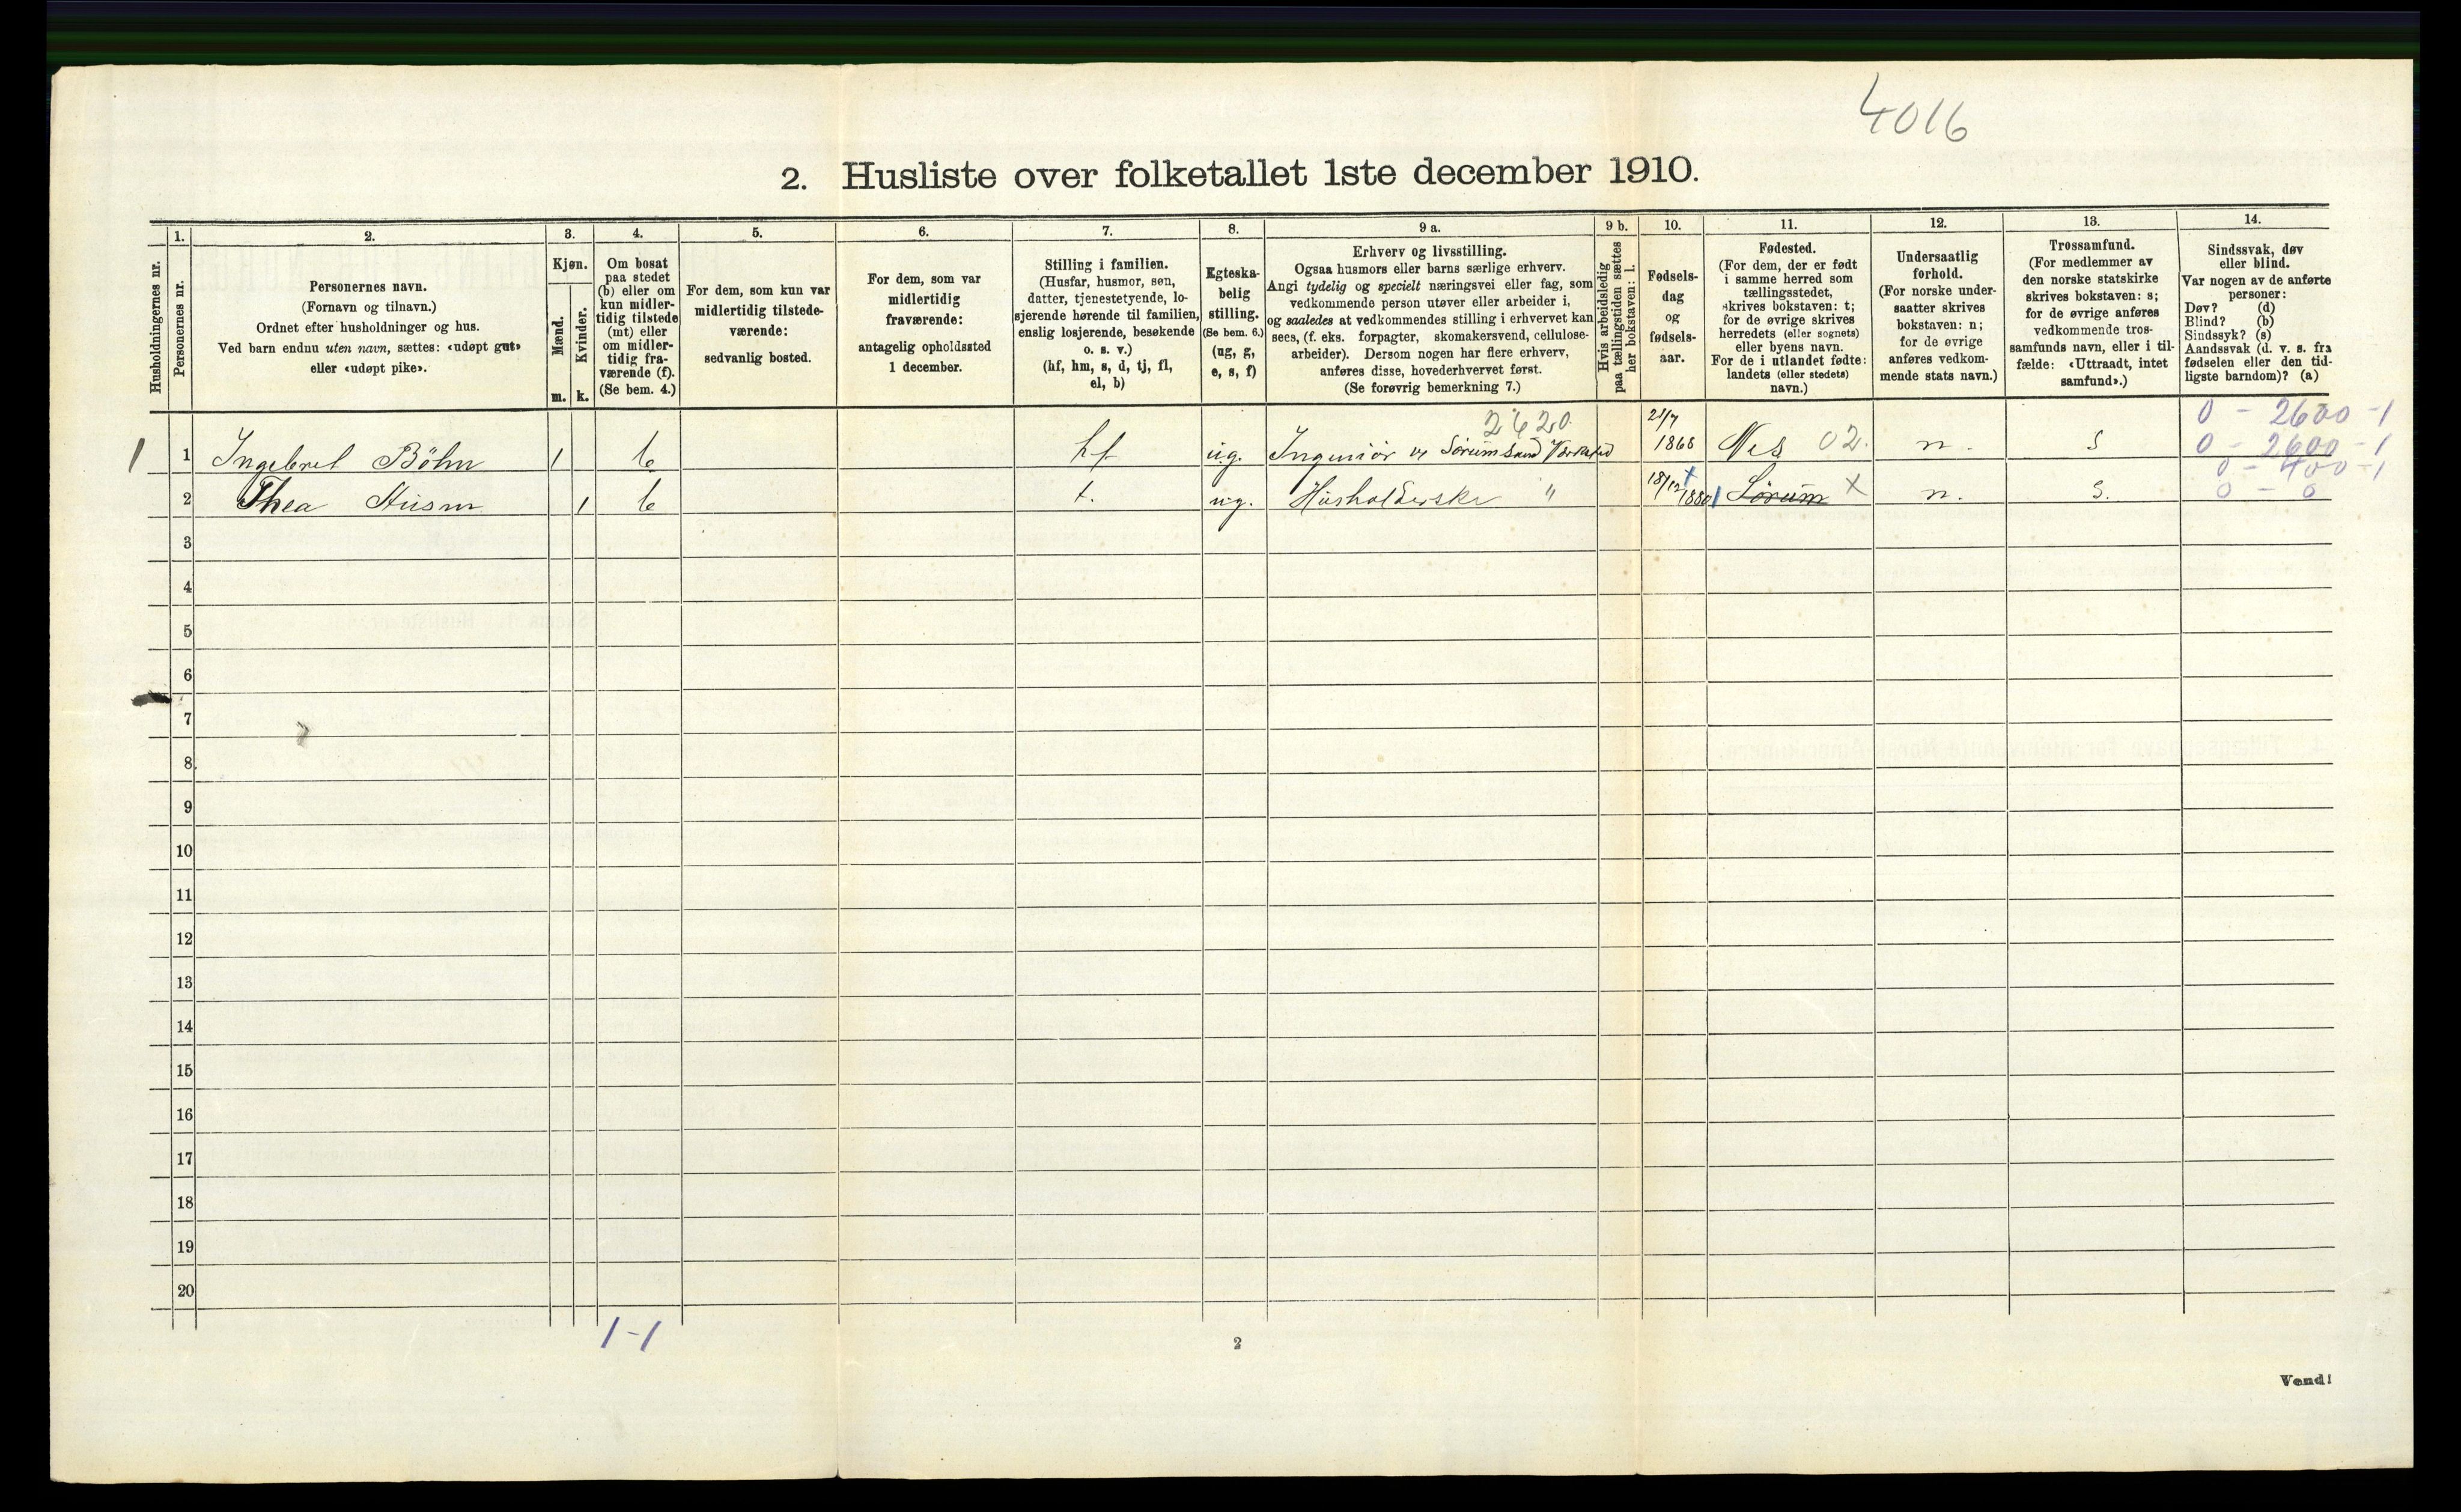 4016
2. Husliste over folketallet 1ste december 1910.
Husholdningernes nr.
1.
Personernes nr.
2.
Personernes navn.
(Fornavn og tilnavn.)
Ordnet efter husholdninger og hus.
Ved barn endnu uten navn, sættes: «udøpt gut»
eller «udøpt pike».
3.
Kjøn.
Mænd.
Kvinder.
m.
k.
4.
Om bosat
paa stedet
(b) eller om
kun midler-
tidig tilstede
(mt) eller
om midler-
tidig fra-
værende (f).
(Se bem. 4.)
5.
For dem, som kun var
midlertidig tilstede-
værende:
sedvanlig bosted.
6.
For dem, som var
midlertidig
fraværende:
antagelig opholdssted
1 december.
7.
Stilling i familien.
(Husfar, husmor, søn,
datter, tjenestetyende, lo-
sjerende hørende til familien,
enslig losjerende, besøkende
o. s. v.)
(hf, hm, s, d, tj, fl,
el, b)
8.
Egteska-
belig
stilling.
(Se bem. 6.)
(ug, g,
e, s, f)
9 a.
Erhverv og livsstilling.
Ogsaa husmors eller barns særlige erhverv.
Angi tydelig og specielt næringsvei eller fag, som
vedkommende person utøver eller arbeider i,
og saaledes at vedkommendes stilling i erhvervet kan
sees, (f. eks. forpagter, skomakersvend, cellulose-
arbeider). Dersom nogen har flere erhverv,
anføres disse, hovederhvervet først.
(Se forøvrig bemerkning 7.)
9 b.
Hvis arbeidsledig
paa tællingstiden sættes
her bokstaven: l.
10.
Fødsels-
dag
og
fødsels-
aar.
11.
Fødested.
(For dem, der er født
i samme herred som
tællingsstedet,
skrives bokstaven: t;
for de øvrige skrives
herredets (eller sognets)
eller byens navn.
For de i utlandet fødte:
landets (eller stedets)
navn.)
12.
Undersaatlig
forhold.
(For norske under-
saatter skrives
bokstaven: n;
for de øvrige
anføres vedkom-
mende stats navn.)
13.
Trossamfund.
(For medlemmer av
den norske statskirke
skrives bokstaven: s;
for de øvrige anføres
vedkommende tros-
samfunds navn, eller i til-
fælde: «Uttraadt, intet
samfund».)
14.
Sindssvak, døv
eller blind.
Var nogen av de anførte
personer:
Døv? (d)
Blind? (b)
Sindssyk? (s)
Aandssvak (d. v. s. fra
fødselen eller den tid-
ligste barndom)? (a)
2620. 21/7 0 - 2600 -1
1 1 Ingebret Böhm 1 b hf ug. Ingeniör ved Sörumsand Værksted 1868 Nes 02. n. s 0 - 2600 - 1
0 - 400 - 1
2 Thea 1 b t. ug. Husholderske " 18/12 1880 Sörum X n. s. 0 - 0
3
4
5
6
7
8
9
10
11
12
13
14
15
16
17
18
19
20
1-1
2
Vend!